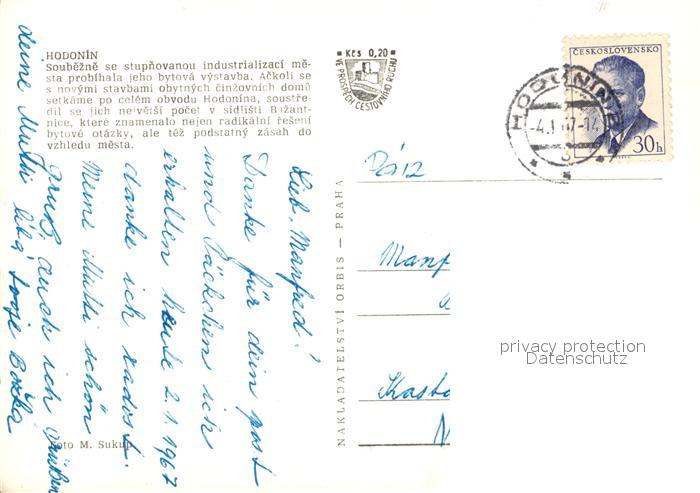 HODONÍN
Souběžně se stupňovanou industrializací mě-
sta probíhala jeho bytová výstavba. Ačkoli se
s novými stavbami obytných činžovních domů
setkáme po celém obvodu Hodonína, soustře-
dil se jich největší počet v sídlišti Bržant-
nice, které znamenalo nejen radikální řešení
bytové otázky, ale též podstatný zásah do
vzhledu města.
Foto M. Sukup
Kčs 0,20
VE PROSPĚCH CESTOVNÍHO RUCHU
NAKLADATELSTVÍ ORBIS — PRAHA
ČESKOSLOVENSKO
30h
HODONÍN
-4.1.67-14
Lieb. Manfred!
Danke für dein post
und Päckchen ich
erhalten heute 2.1.1967
danke ich radost.
Meine Mutti schön
gruß, auch ich grüßen
deine Mutti líbá tvoje Božka
Manf
Kasto
N
privacy protection
Datenschutz